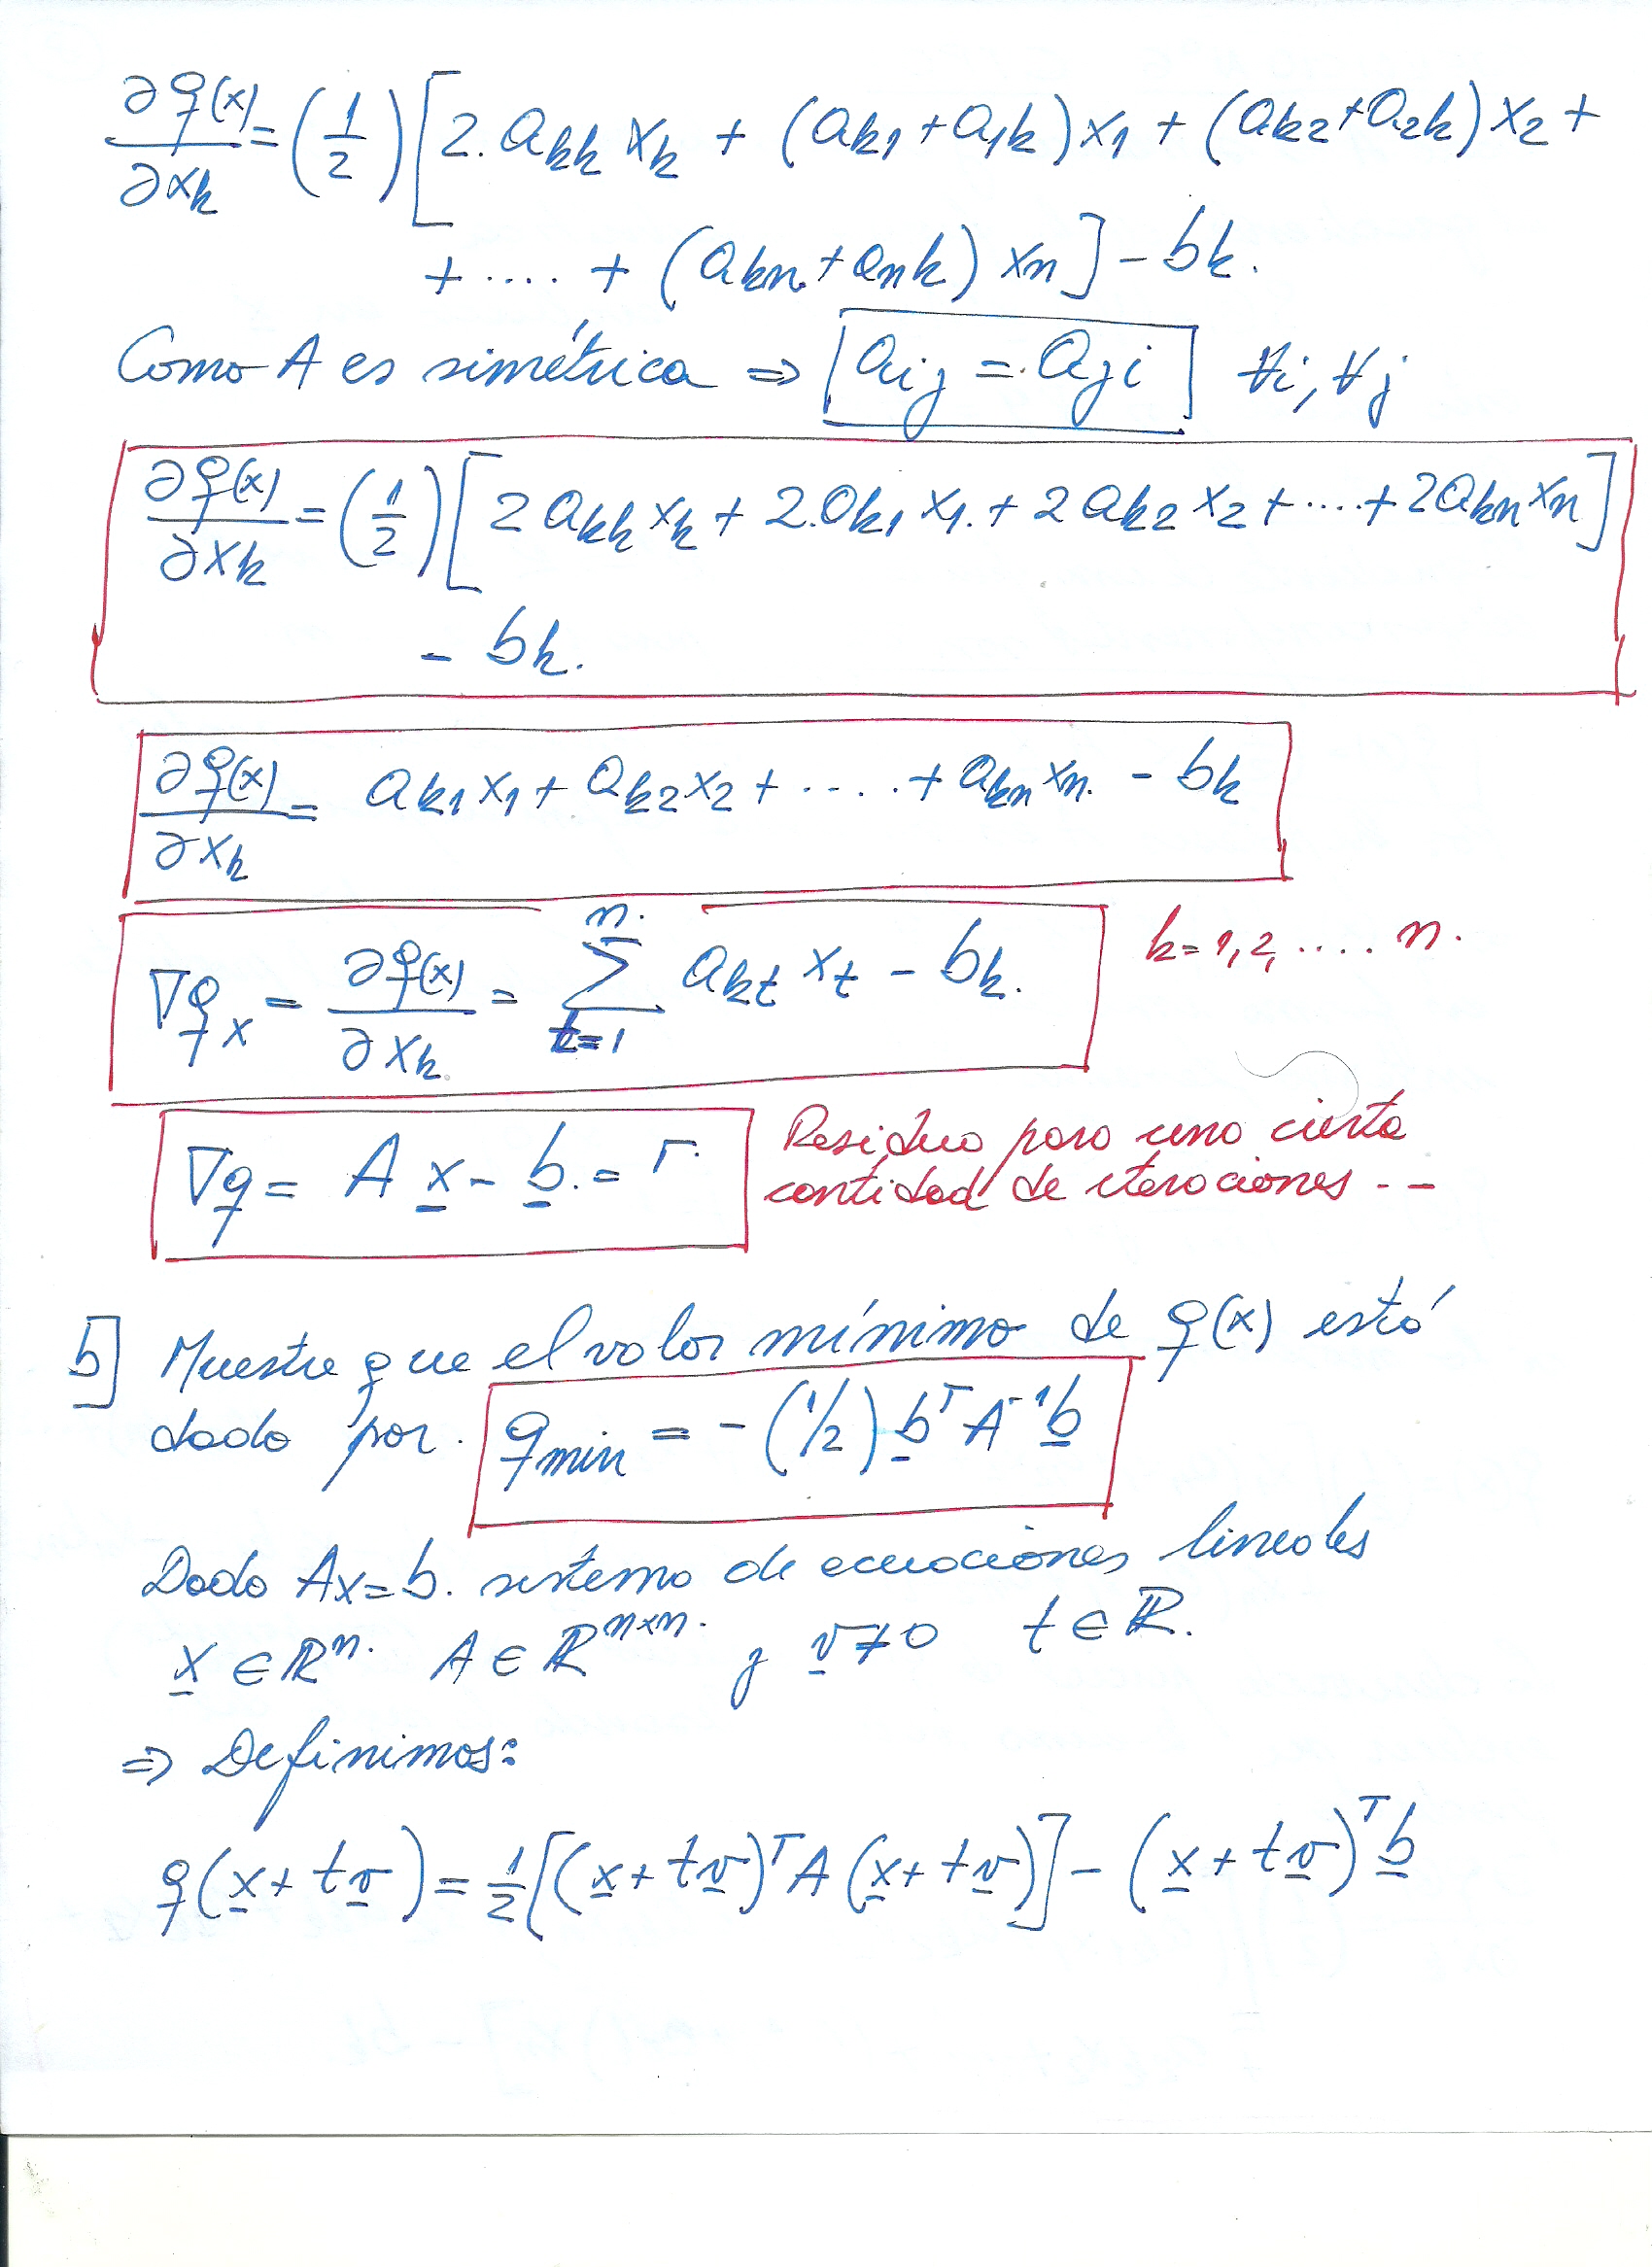 ∂q(x)/∂xk = (1/2) [ 2. akk xk + (ak1 + a1k) x1 + (ak2 + a2k) x2 +
+ .... + (akn + ank) xn ] - bk.
Como A es simétrica ⇒ [aij = aji] ∀i, ∀j
∂q(x)/∂xk = (1/2) [ 2 akk xk + 2. ak1 x1. + 2 ak2 x2 + .... + 2 akn xn ]
- bk.
∂q(x)/∂xk = ak1 x1 + ak2 x2 + ..... + akn xn. - bk
∇q x = ∂q(x)/∂xk = Σ_{t=1}^{n.} akt xt - bk. k = 1, 2, .... n.
∇q = A x - b. = r. Residuo para una cierta
cantidad de iteraciones - -
b] Muestre que el valor mínimo de q(x) está
dado por. qmin = - (1/2) b^T A^-1 b
Dado Ax = b. sistema de ecuaciones lineales
x ∈ ℝ^n. A ∈ ℝ^{n×n}. y v ≠ 0 t ∈ ℝ.
⇒ Definimos:
q(x + tv) = 1/2 [(x + tv)^T A (x + tv)] - (x + tv)^T b